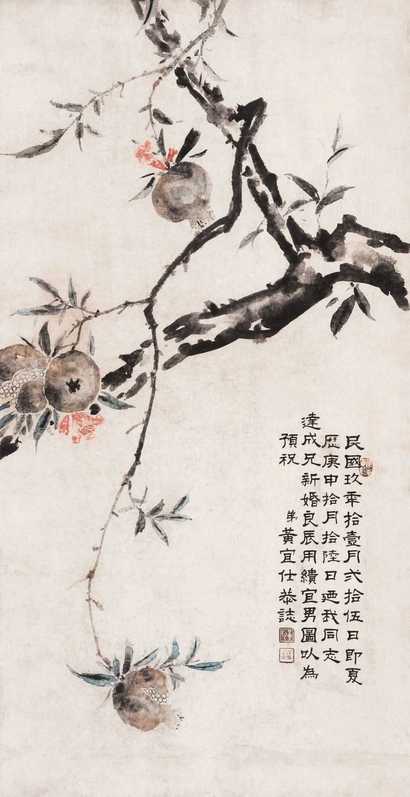 民國玖年拾壹月弍拾伍日即夏
歷庚申拾月拾陸日迺我同志
達成兄新婚良辰用繢宜男圖以為
預祝
弟黃宜仕恭誌